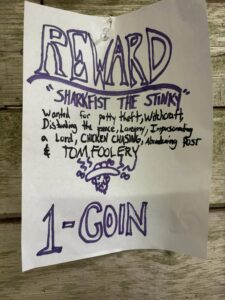 REWARD
"SHARKFIST THE STINKY"
Wanted for petty theft, Witchcraft,
Disturbing the peace, Larceny, Impersonating
a Lord, CHICKEN CHASING, Abandoning POST
& TOM FOOLERY
1-GOIN